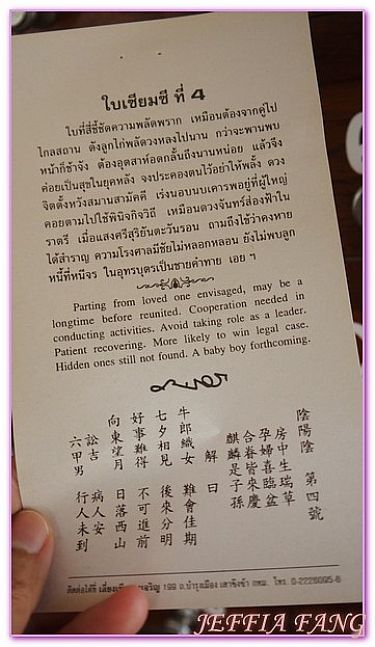 ใบเซียมซี ที่ 4
ใบที่สี่ชี้ชัดความพลัดพราก เหมือนต้องจากคู่ไป
ไกลสถาน ดังลูกไก่พลัดวงหลงไปนาน กว่าจะพานพบ
หน้าก็ช้าจัง ต้องอุตสาห์อดกลั้นถึงนานหน่อย แล้วจึง
ค่อยเป็นสุขในยุคหลัง จงประคองตนไว้อย่าให้พลั้ง ดวง
จิตตั้งหวังสมานสามัคคี เร่งนอบนบเคารพอยู่ที่ผู้ใหญ่
คอยตามไปใช้พินิจกิจวิถี เหมือนดวงจันทร์ส่องฟ้าใน
ราตรี เมื่อแสงศรีสุริยันตะวันรอน ถามถึงไข้ว่าคงหาย
ได้สำราญ ความโรงศาลมีชัยไม่หลอกหลอน ยังไม่พบลูก
หนี้ที่หนีจร ในอุทรบุตรเป็นชายคำทาย เอย ฯ
Parting from loved one envisaged, may be a
longtime before reunited. Cooperation needed in
conducting activities. Avoid taking role as a leader.
Patient recovering. More likely to win legal case.
Hidden ones still not found. A baby boy forthcoming.
陰陽陰 第四號
房中生瑞草
孕婦喜臨盆
合眷皆來慶
麒麟是子孫
解曰
牛郎織女 難會佳期
七夕相見 後來分明
好事難得 不可進前
向東望月 日落西山
訟吉 病人安
六甲男 行人未到
ติดต่อได้ที่ เลี่ยงเซียงจงเจริญ 199 ถ.บำรุงเมือง เสาชิงช้า กทม. โทร. 0-2226095-6
JEFFIA FANG